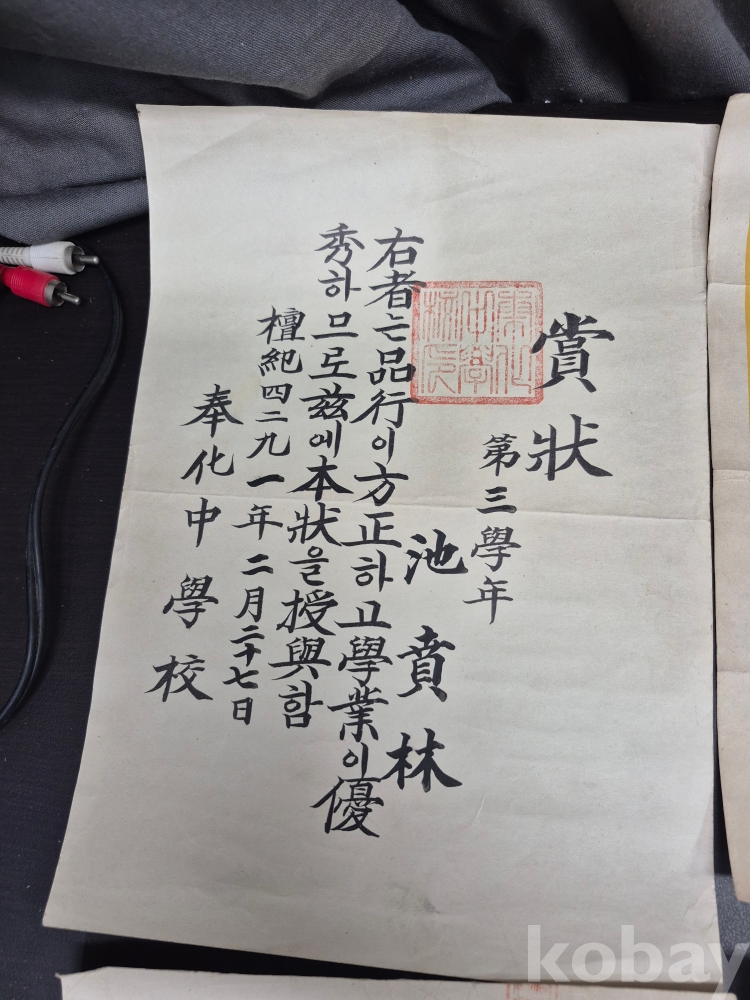 賞狀
第三學年
池賁林
右者는品行이方正하고學業이優
秀하므로玆에本狀을授與함
檀紀四二九一年二月二十七日
奉化中學校
kobay